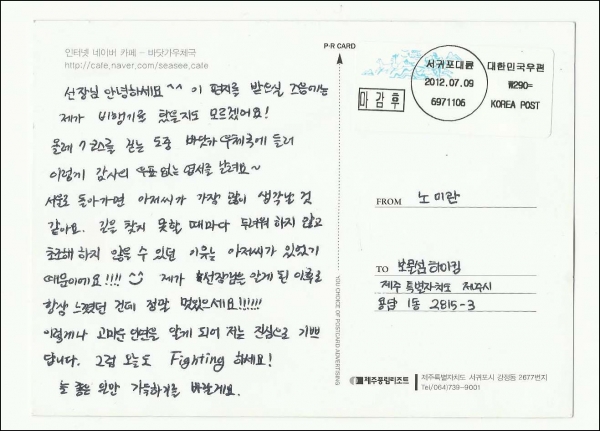 인터넷 네이버 카페 - 바닷가우체국
http://cafe.naver.com/seasee,cafe
선장님 안녕하세요^^ 이 편지를 받으실 즈음에는
제가 비행기를 탔을지도 모르겠어요!
올레 7코스를 걷는 도중 바닷가우체국에 들러
이렇게 감사의 우표 없는 엽서를 날려요~
서울로 돌아가면 아저씨가 가장 많이 생각날 것
같아요. 길을 찾지 못할 때마다 두려워 하지 않고
초조해 하지 않을 수 있던 이유는 아저씨가 있었기
때문이에요!!!! 제가 선장님을 알게 된 이후로
항상 느꼈던 건데 정말 멋있으세요!!!!!!
이렇게나 고마운 인연을 알게 되어 저는 진심으로 기쁘
답니다. 그럼 오늘도 Fighting 하세요!
늘 좋은 일만 가득하기를 바랄게요.
P·R CARD
YOU CHOICE OF POSTCARD ADVERTISING
서귀포대륜
2012.07.09
6971106
마감후
대한민국우편
₩290=
KOREA POST
FROM 노미란
TO 보물섬하이킹
제주특별자치도 제주시
용담 1동 2815-3
제주풍림리조트
제주특별자치도 서귀포시 강정동 2677번지
Tel/064)739-9001